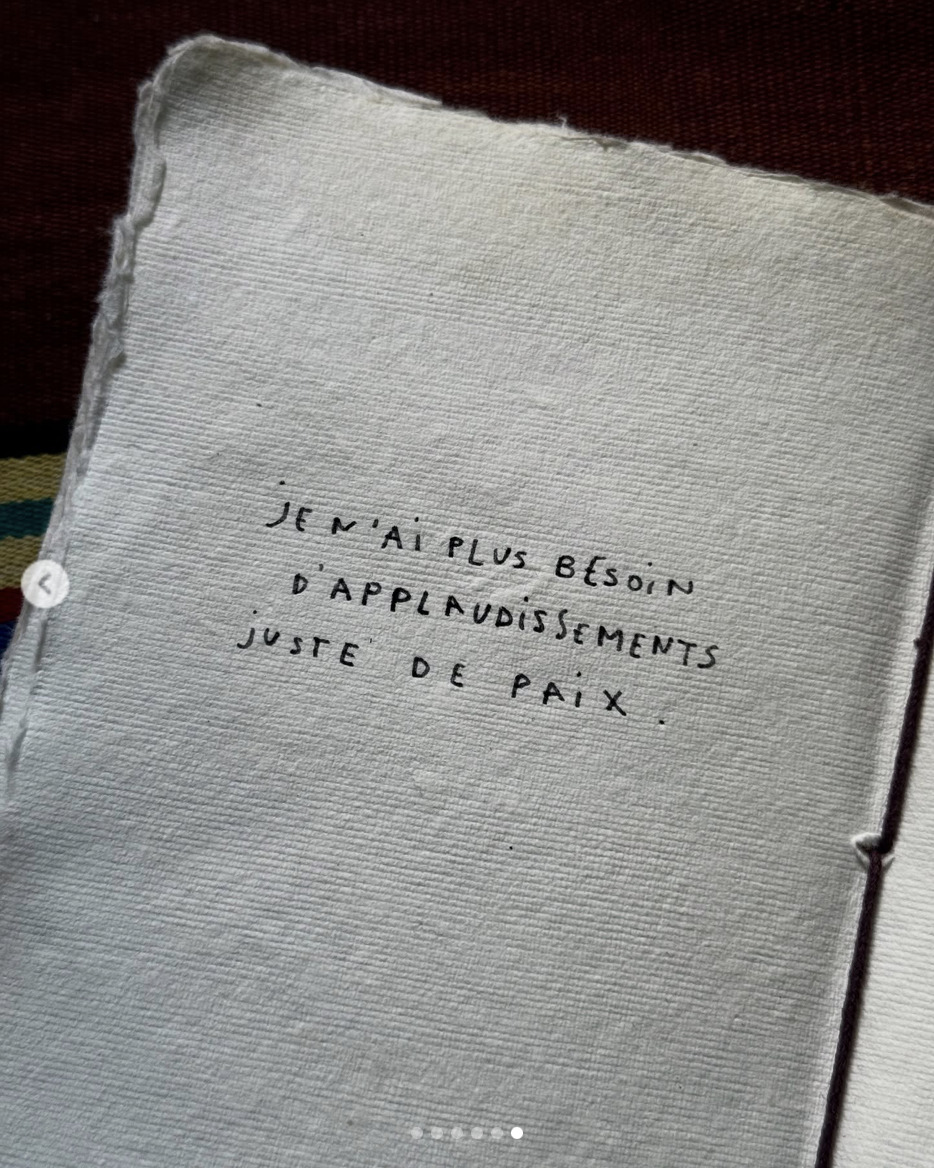 JE N'Ai PLUS BESOiN
D'APPLAUDiSSEMENTS
jUSTE DE PAiX.